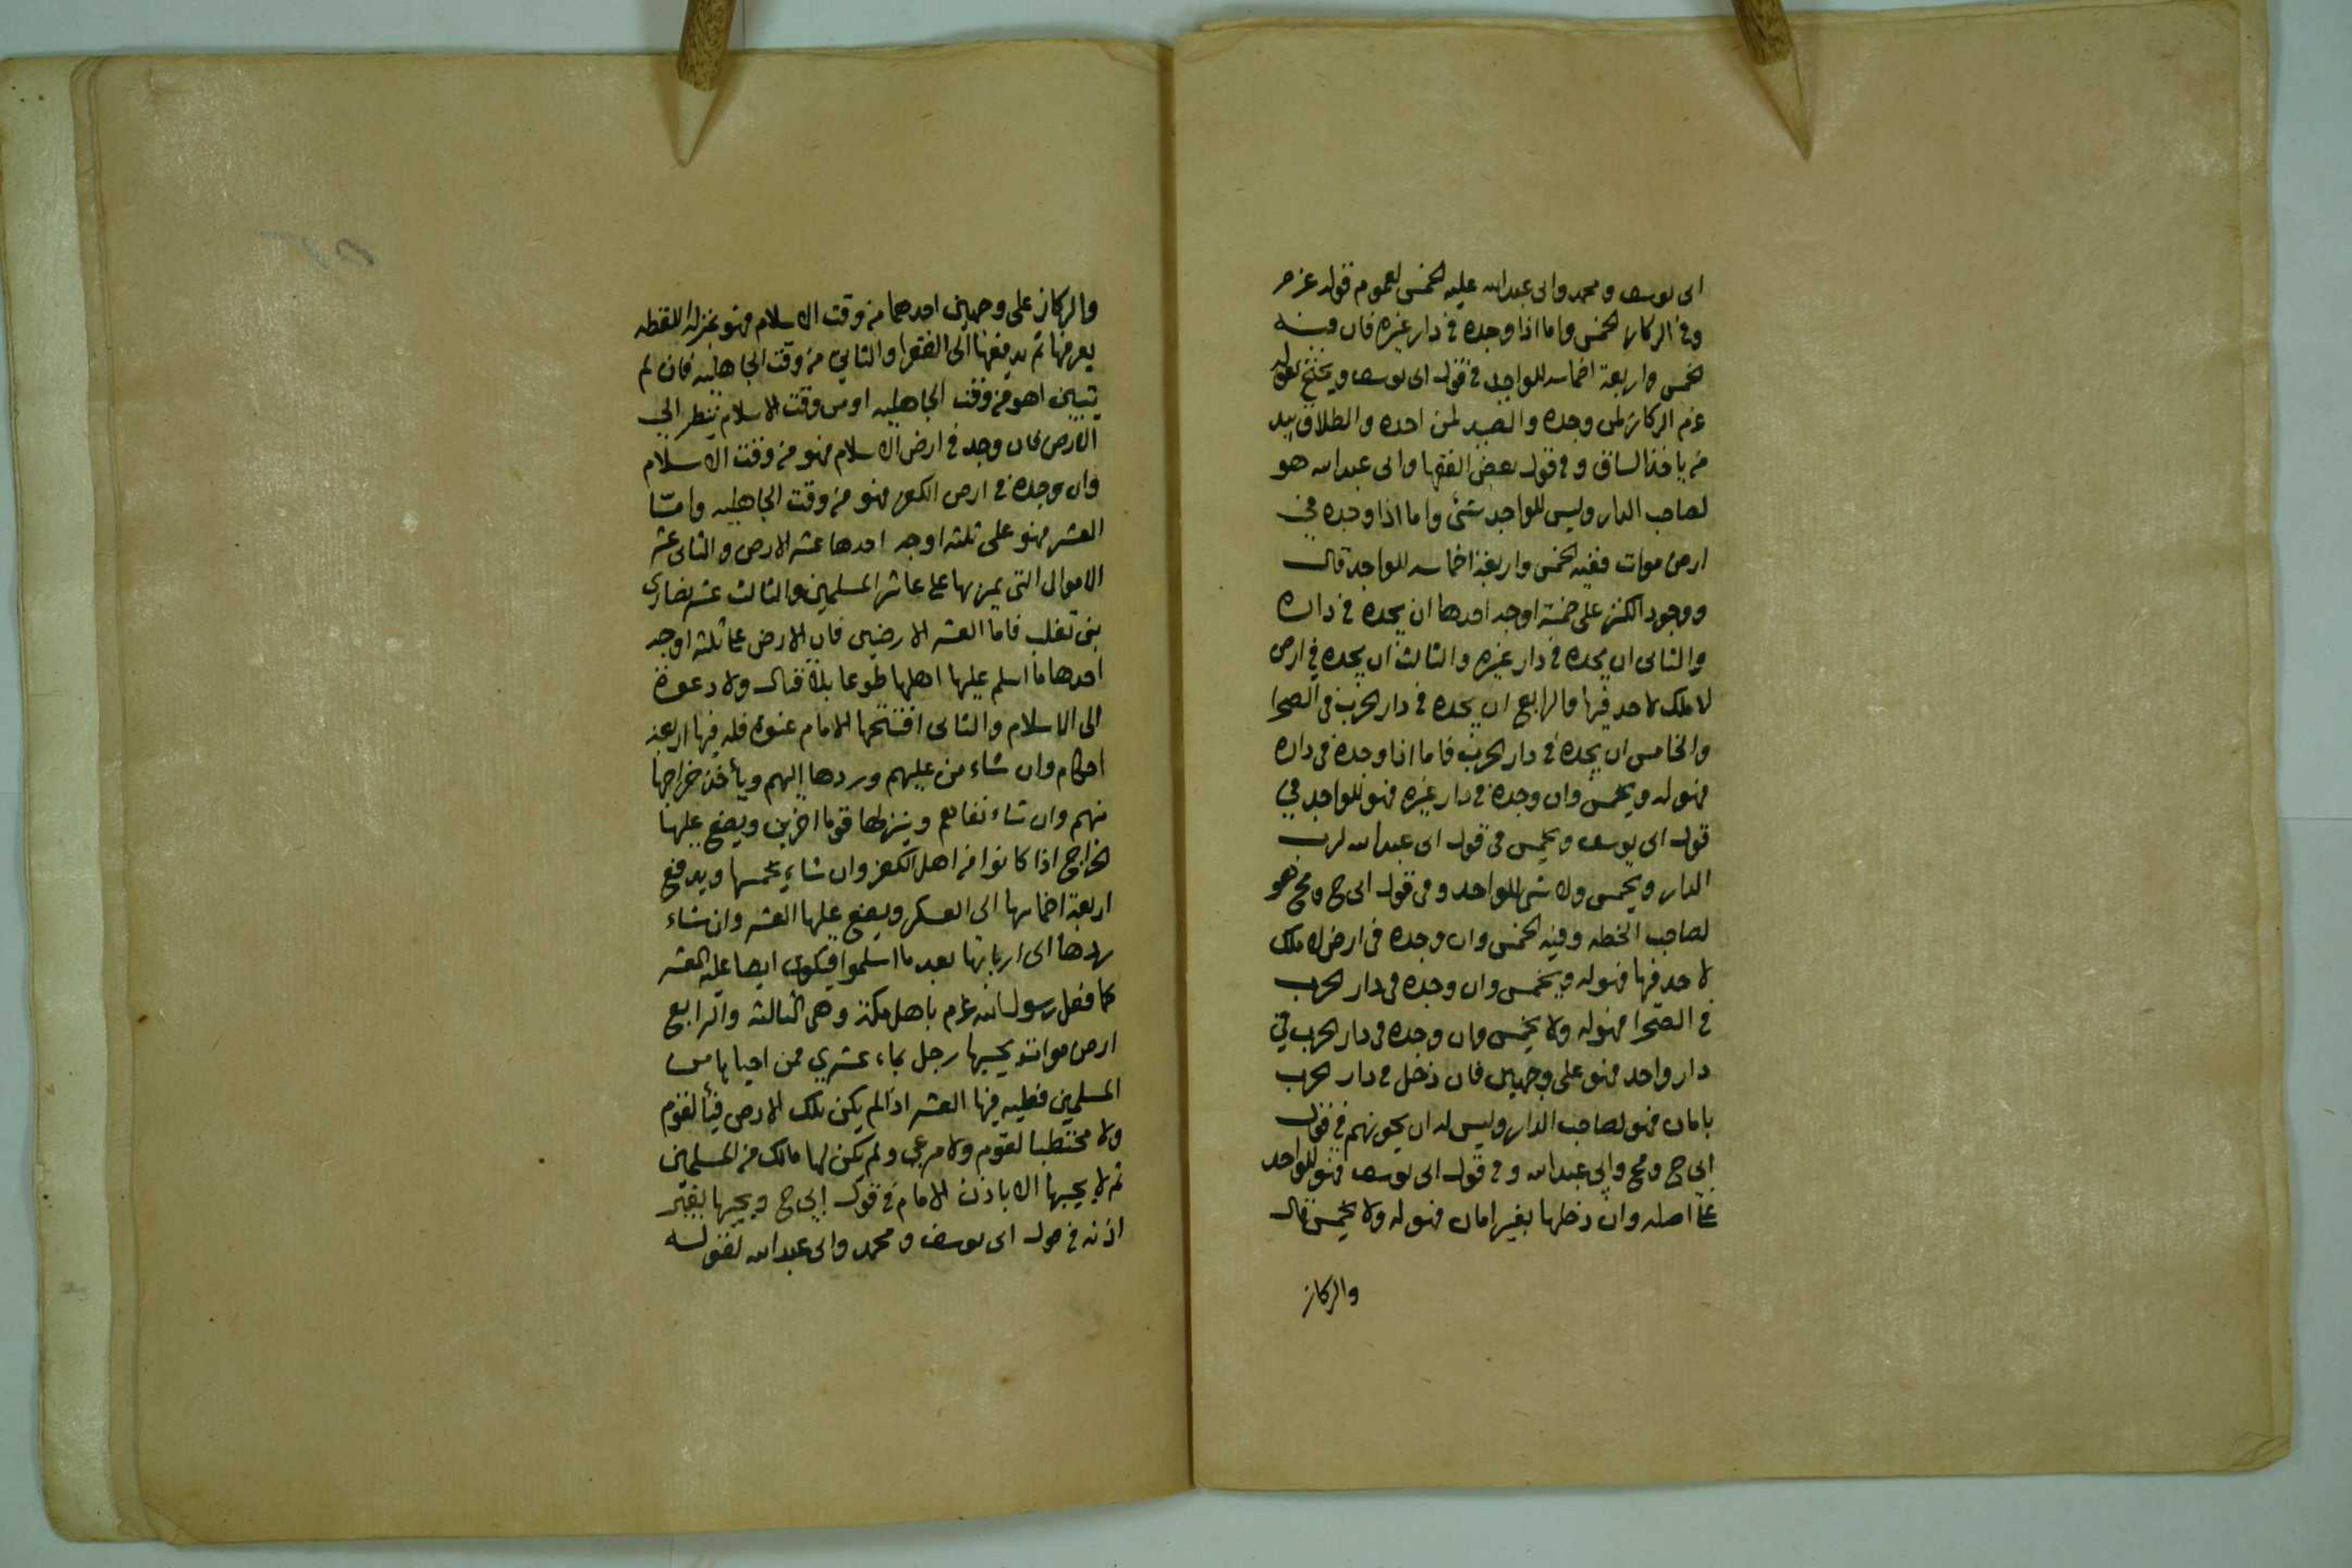 ابى يوسف ومحمد وابى عبدالله عليه الخمس لعموم قوله عزم
وفى الركاز الخمس واما اذا وجده فى دار غيره فان فيه
الخمس واربعة اخماسه للواجد فى قول ابى يوسف ويحتج بقوله
عزم الركاز لمن وجده والصيد لمن اخذه والطلاق بيد
من ياخذ الساق وفى قول بعض الفقها وابى عبدالله هو
لصاحب الدار وليس للواجد شئ واما اذا وجده فى
ارض موات ففيه الخمس واربعة اخماسه للواجد قال
ووجود الكنز على خمسة اوجه احدها ان يجده فى داره
والثانى ان يجده فى دار غيره والثالث ان يجده فى ارض
لا ملك لاحد فيها والرابع ان يجده فى دار الحرب فى الصحرا
والخامس ان يجده فى دار الحرب فاما اذا وجده فى داره
فهو له ويخمس وان وجده فى دار غيره فهو للواجد فى
قول ابى يوسف ويخمس فى قول ابى عبدالله لرب
الدار ويخمس ولا شى للواجد وفى قول ابى ح ومح هو
لصاحب الخطه وفيه الخمس وان وجده فى ارض لا ملك
لاحد فيها فهو له ويخمس وان وجده فى دار الحرب
فى الصحرا فهو له ولا يخمس وان وجده فى دار الحرب فى
دار واحد فهو على وجهين فان دخل فى دار الحرب
بامان فهو لصاحب الدار وليس له ان يخونهم فى قول
ابى ح ومح وابى عبدالله وفى قول ابى يوسف فهو للواجد
على اصله وان دخلها بغير امان فهو له ولا يخمس قال
والركاز
والركاز على وجهين احدهما من وقت الاسلام فهو بمنزلة اللقطه
يعرفها ثم يدفعها الى الفقرا والثاني من وقت الجاهليه فان لم
يتبين اهو من وقت الجاهليه او من وقت الاسلام ينظر الى
الارض فان وجد فى ارض الاسلام فهو من وقت الاسلام
وان وجده فى ارض الكفر فهو من وقت الجاهليه وامّا
العشر فهو على ثلثه اوجه احدها عشر الارض والثانى عشر
الاموال التى يمر بها على عاشر المسلمين والثالث عشر نصارى
بنى تغلب فاما العشر الارضين فان الارض على ثلثه اوجه
احدها ما اسلم عليها اهلها طوعا بلا قتال ولا دعوة
الى الاسلام والثانى افتتحها الامام عنوة فله فيها اربعة
احكام وان شاء من عليهم وردها إليهم ويأخذ خراجها
منهم وان شاء نفاهم وينزلها قوما اخرين ويضع عليها
الخراج اذا كانوا من اهل الكفر وان شاء خمسها ويدفع
اربعة اخماسها الى العسكر ويضع عليها العشر وان شاء
ردها الى اربابها بعد ما اسلموا فيكون ايضا عليه العشر
كما فعل رسول الله عزم باهل مكة وهى الثالثه والرابع
ارض موات يحييها رجل بماء عشري فمن احياها من
المسلمين فعليه فيها العشر اذا لم يكن تلك الارض فيأ لقوم
ولا محتطبا لقوم ولا مرعى ولم يكن لها مالك من المسلمين
ثم لا يحييها الا باذن الامام فى قول إبى ح ويحييها بغير
اذنه فى قول ابى يوسف ومحمد وابى عبدالله لقوله